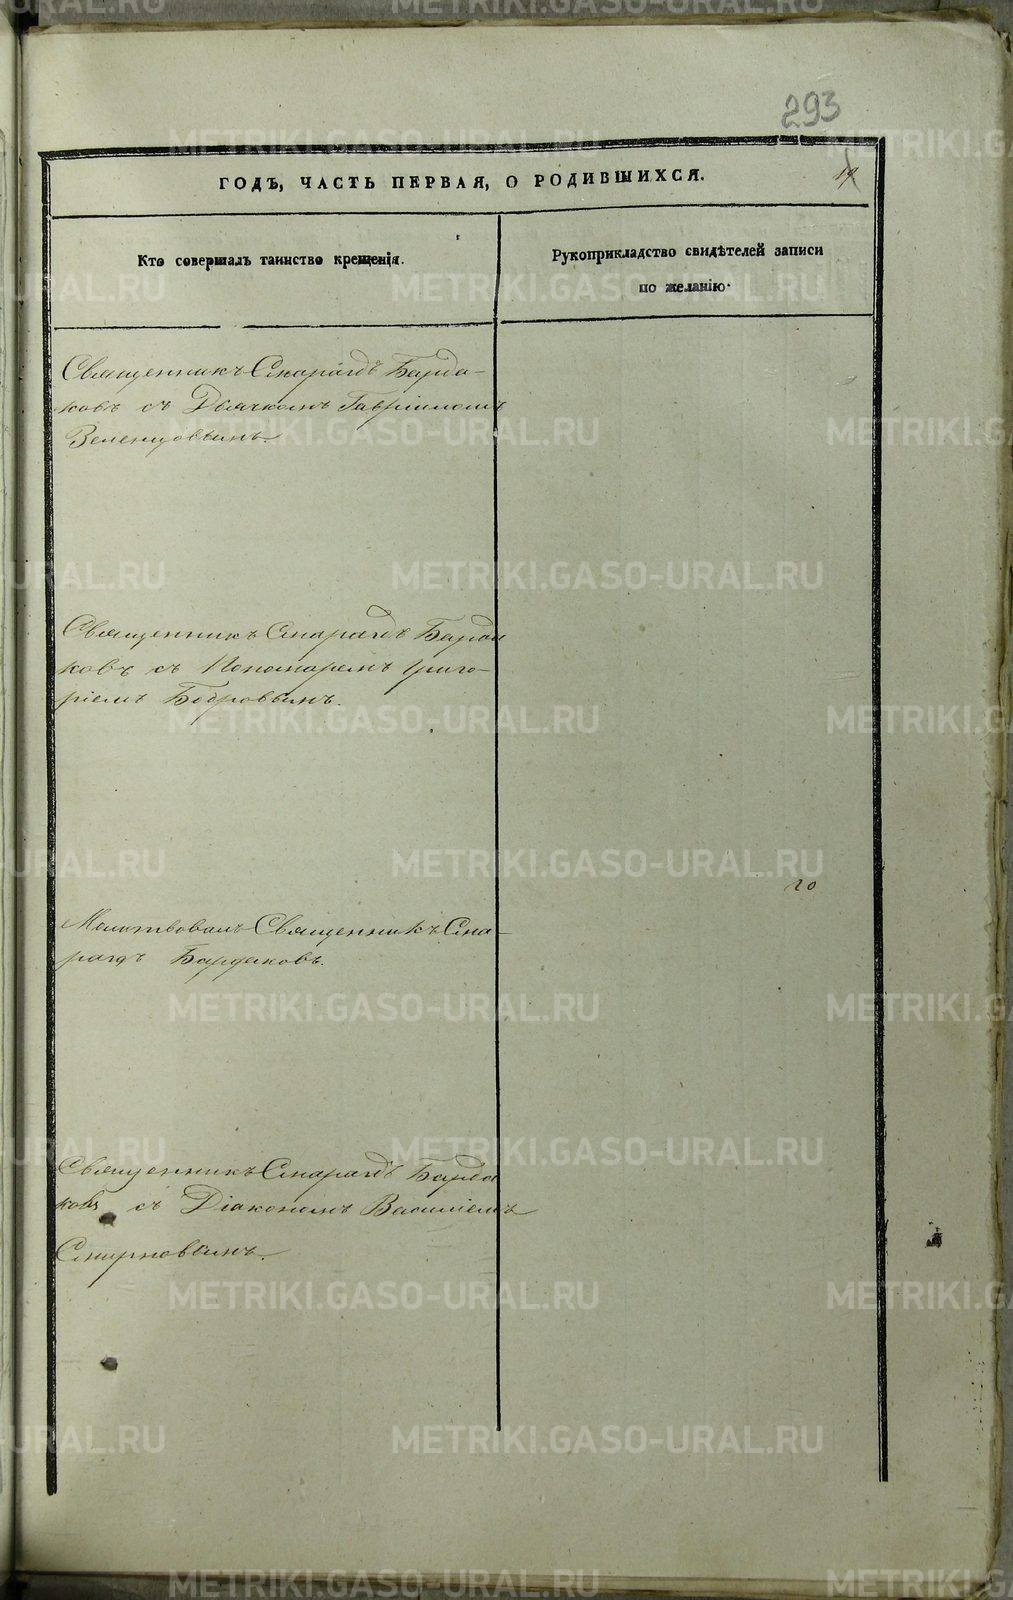 293
ГОДЪ, ЧАСТЬ ПЕРВАЯ, О РОДИВШИХСЯ.
19
Кто совершалъ таинство крещенія.
Рукоприкладство свидѣтелей записи
по желанію.
Священникъ Смарагдъ Барда-
ковъ съ Дьячкомъ Гавріиломъ
Зеленцовымъ.
Священникъ Смарагдъ Барда
ковъ съ Пономаремъ Григо-
ріемъ Бобровымъ.
20
Молитвовалъ Священникъ Сма-
рагдъ Бардаковъ.
Священникъ Смарагдъ Барда
ковъ съ Діакономъ Василіемъ
Смирновымъ.
METRIKI.GASO-URAL.RU